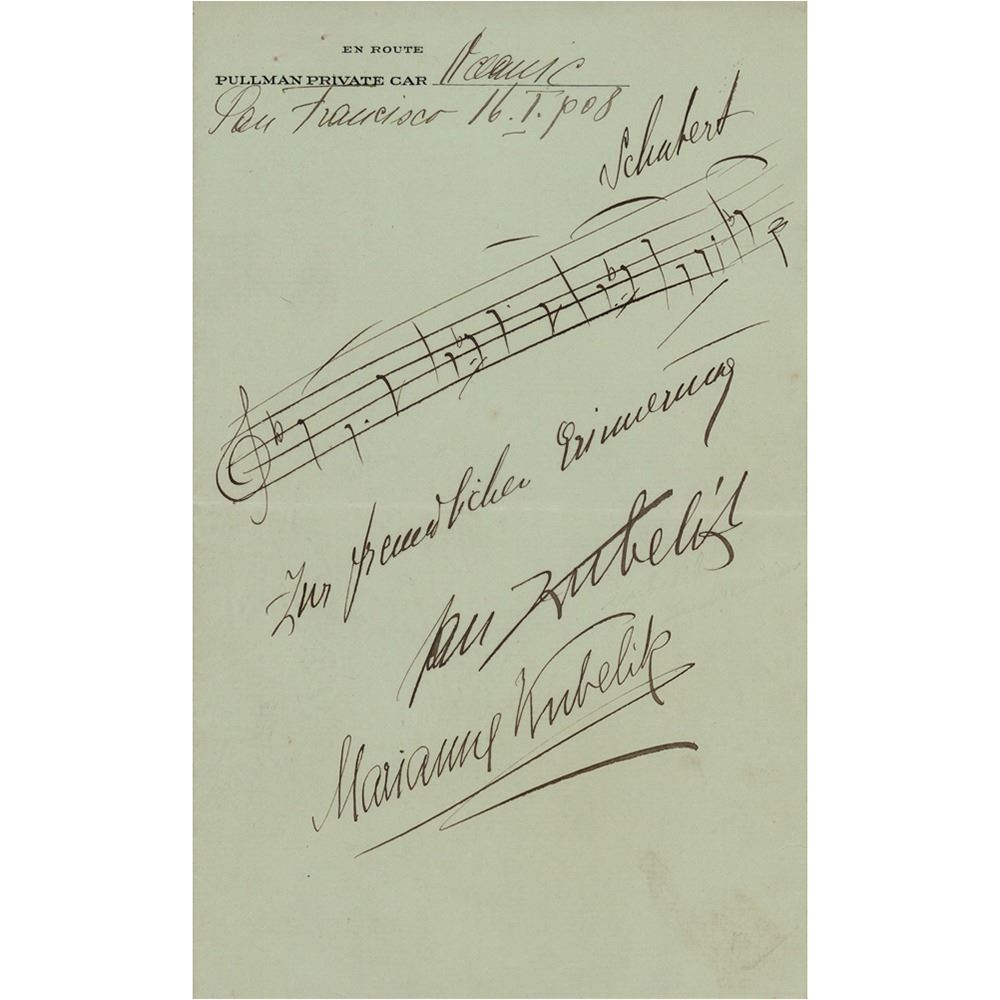 EN ROUTE
PULLMAN PRIVATE CAR Oceanic
San Francisco 16. I. 908
Schubert
Zur freundlichen Erinnerung
Jan Kubelík
Marianne Kubelik